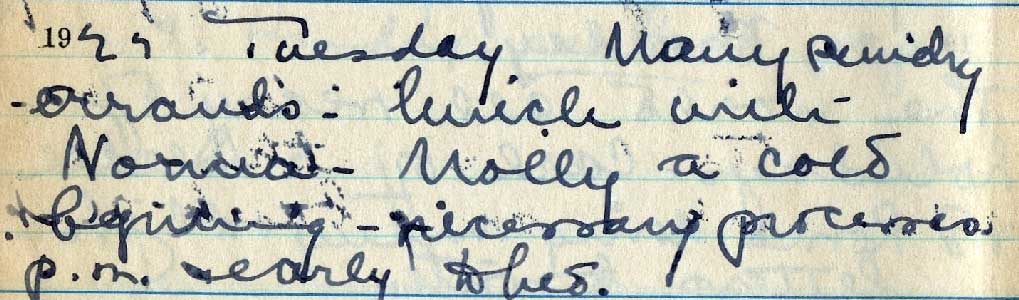 1944 Tuesday Many sundry
errands - lunch with
Norma - Molly a cold
beginning - necessary processes
p.m. early to bed.